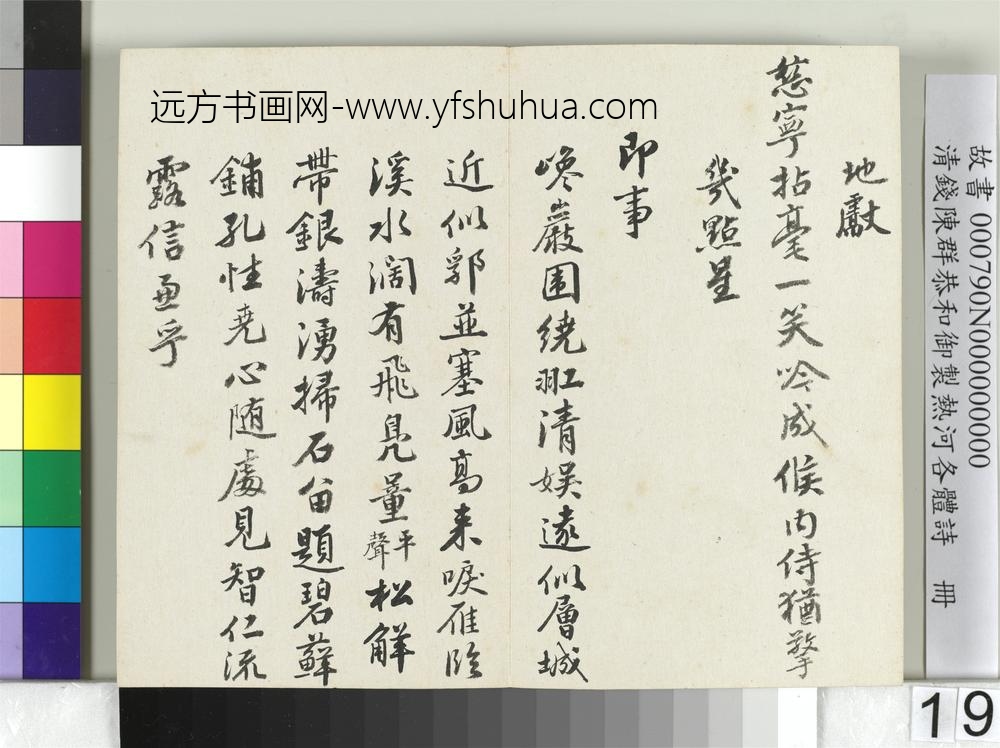 远方书画网-www.yfshuhua.com
地獻
慈寧拈毫一笑吟成候內侍猶擎
幾點星
即事
巉巖围绕淑清娱遠似層城
近似郛並塞風高来唳雁臨
溪水濶有飛鳧量平聲松解
帶銀濤湧掃石留題碧蘚
鋪孔性堯心随處見智仁流
露信畫乎
故書 000790N000000000
清錢陳群恭和御製熱河各體詩 冊
19